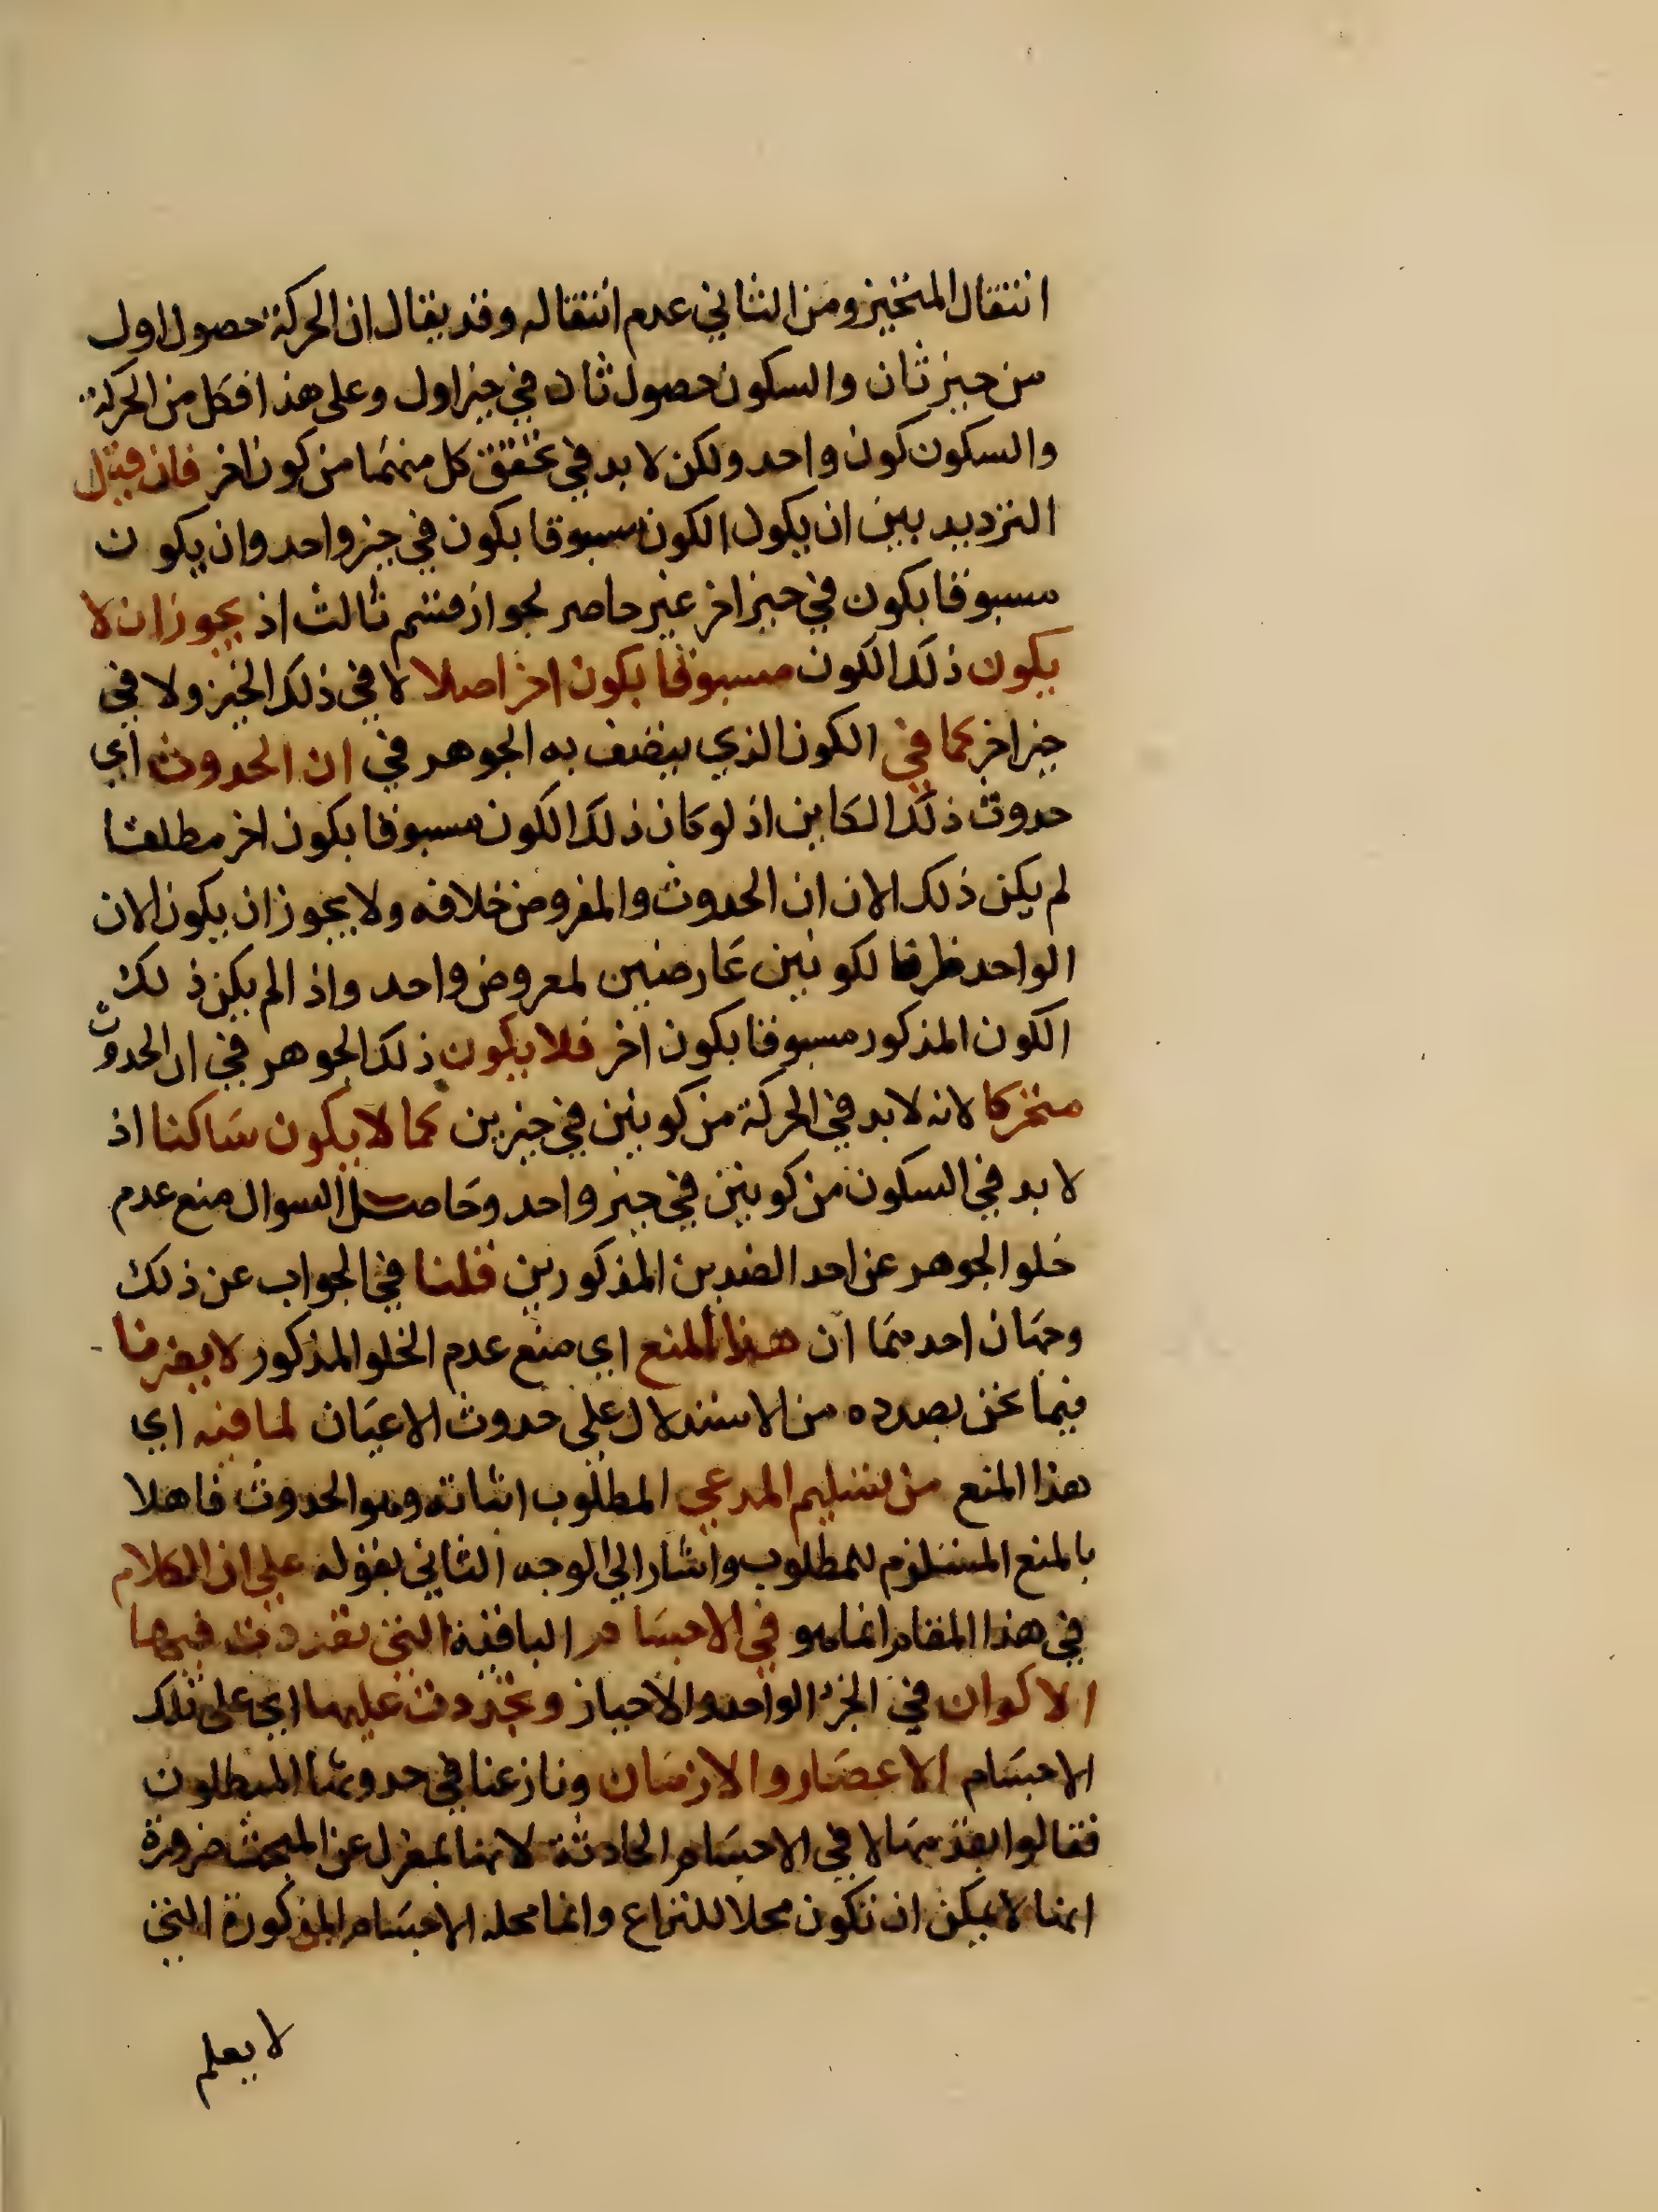 انتقال المتحيز ومن الثاني عدم انتقاله وقد يقال ان الحركة حصول اول
من حيز ثان والسكون حصول ثان في حيز اول وعلى هذا فكل من الحركة
والسكون كون واحد ولكن لا بد في تحقق كل منهما من كون اخر فان قيل
الترديد بين ان يكون الكون مسبوقا بكون في حيز واحد وان يكون
مسبوقا بكون في حيز اخر غير حاصر لجواز قسم ثالث اذ يجوز ان لا
يكون ذلك الكون مسبوقا بكون اخر اصلا لا في ذلك الحيز ولا في
حيز اخر كما في الكون الذي يتصف به الجوهر في ان الحدوث اي
حدوث ذلك الكاين اذ لو كان ذلك الكون مسبوقا بكون اخر مطلقا
لم يكن ذلك الان ان الحدوث والمفروض خلافه ولا يجوز ان يكون الان
الواحد ظرفا لكونين عارضين لمعروض واحد واذا لم يكن ذلك
الكون المذكور مسبوقا بكون اخر فلا يكون ذلك الجوهر في ان الحدوث
متحركا لانه لا بد في الحركة من كونين في حيزين كما لا يكون ساكنا اذ
لا بد في السكون من كونين في حيز واحد وحاصل السوال منع عدم
خلو الجوهر عن احد الضدين المذكورين قلنا في الجواب عن ذلك
وجهان احدهما ان هذا المنع اي منع عدم الخلو المذكور لا يضرنا
فيما نحن بصدده من الاستدلال على حدوث الاعيان لما فيه اي
هذا المنع من تسليم المدعي المطلوب اثباته وهو الحدوث فاهلا
بالمنع المستلزم للمطلوب واشار الي الوجه الثاني بقوله علي ان الكلام
في هذا المقام انما هو في الاجسام الباقية التي تعددت فيها
الاكوان في الحيز الواحد والاحياز وتجددت عليها اي على تلك
الاجسام الاعصار والازمان ونازعنا في حدوثها المبطلون
فقالوا بقدمها لا في الاجسام الحادثة لانها بمعزل عن المبحث ضرورة
انها لا يمكن ان تكون محلا للنزاع وانما محله الاجسام المذكورة التي
لا يعلم